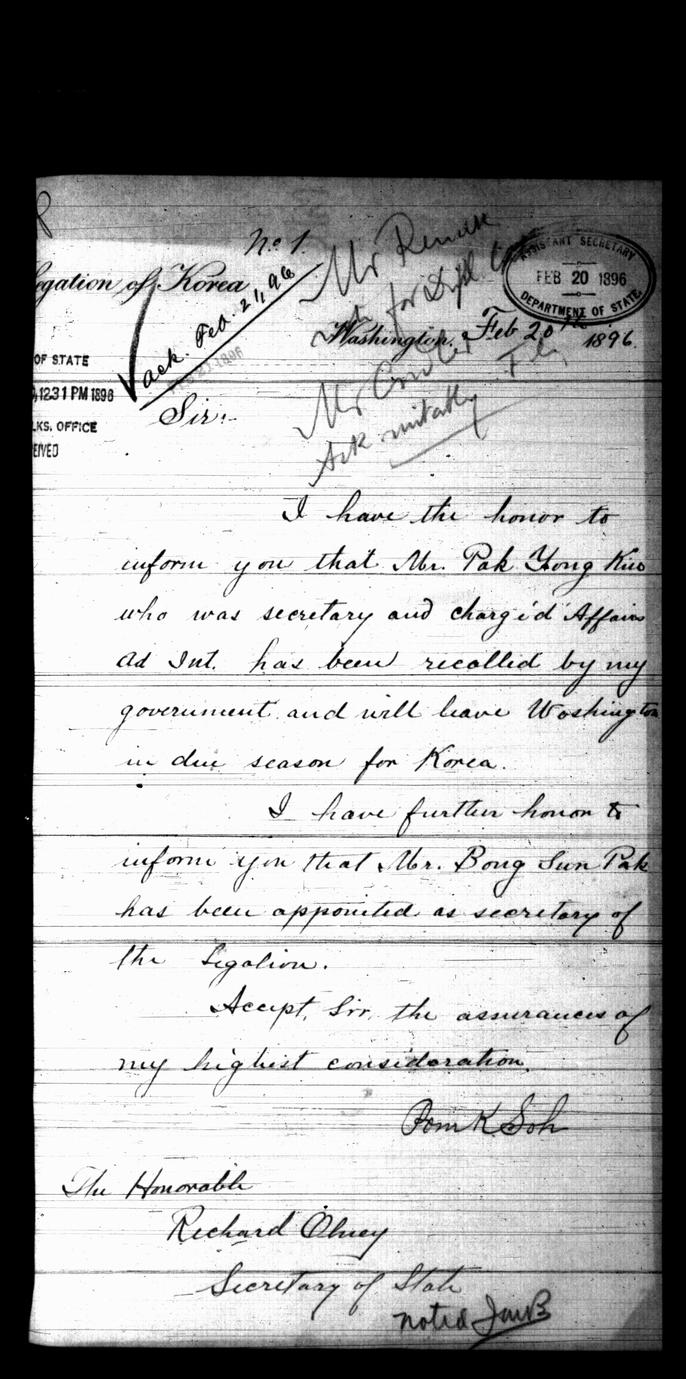 No. 1.
egation of Korea
Ack. Feb. 21, 96
Mr
for
ASSISTANT SECRETARY
FEB 20 1896
DEPARTMENT OF STATE
Washington, Feb 20th 1896.
OF STATE
1231 PM 1896
LKS. OFFICE
EIVED
Mr
Ack suitably
Sir:
I have the honor to
inform you that Mr. Pak Yong Kiu
who was secretary and chargé d' Affairs
ad Int. has been recalled by my
government and will leave Washington
in due season for Korea.
I have further honor to
inform you that Mr. Bong Sun Pak
has been appointed as secretary of
the Legation.
Accept, Sir, the assurances of
my highest consideration.
Pom K. Soh
The Honorable
Richard Olney
Secretary of State
noted